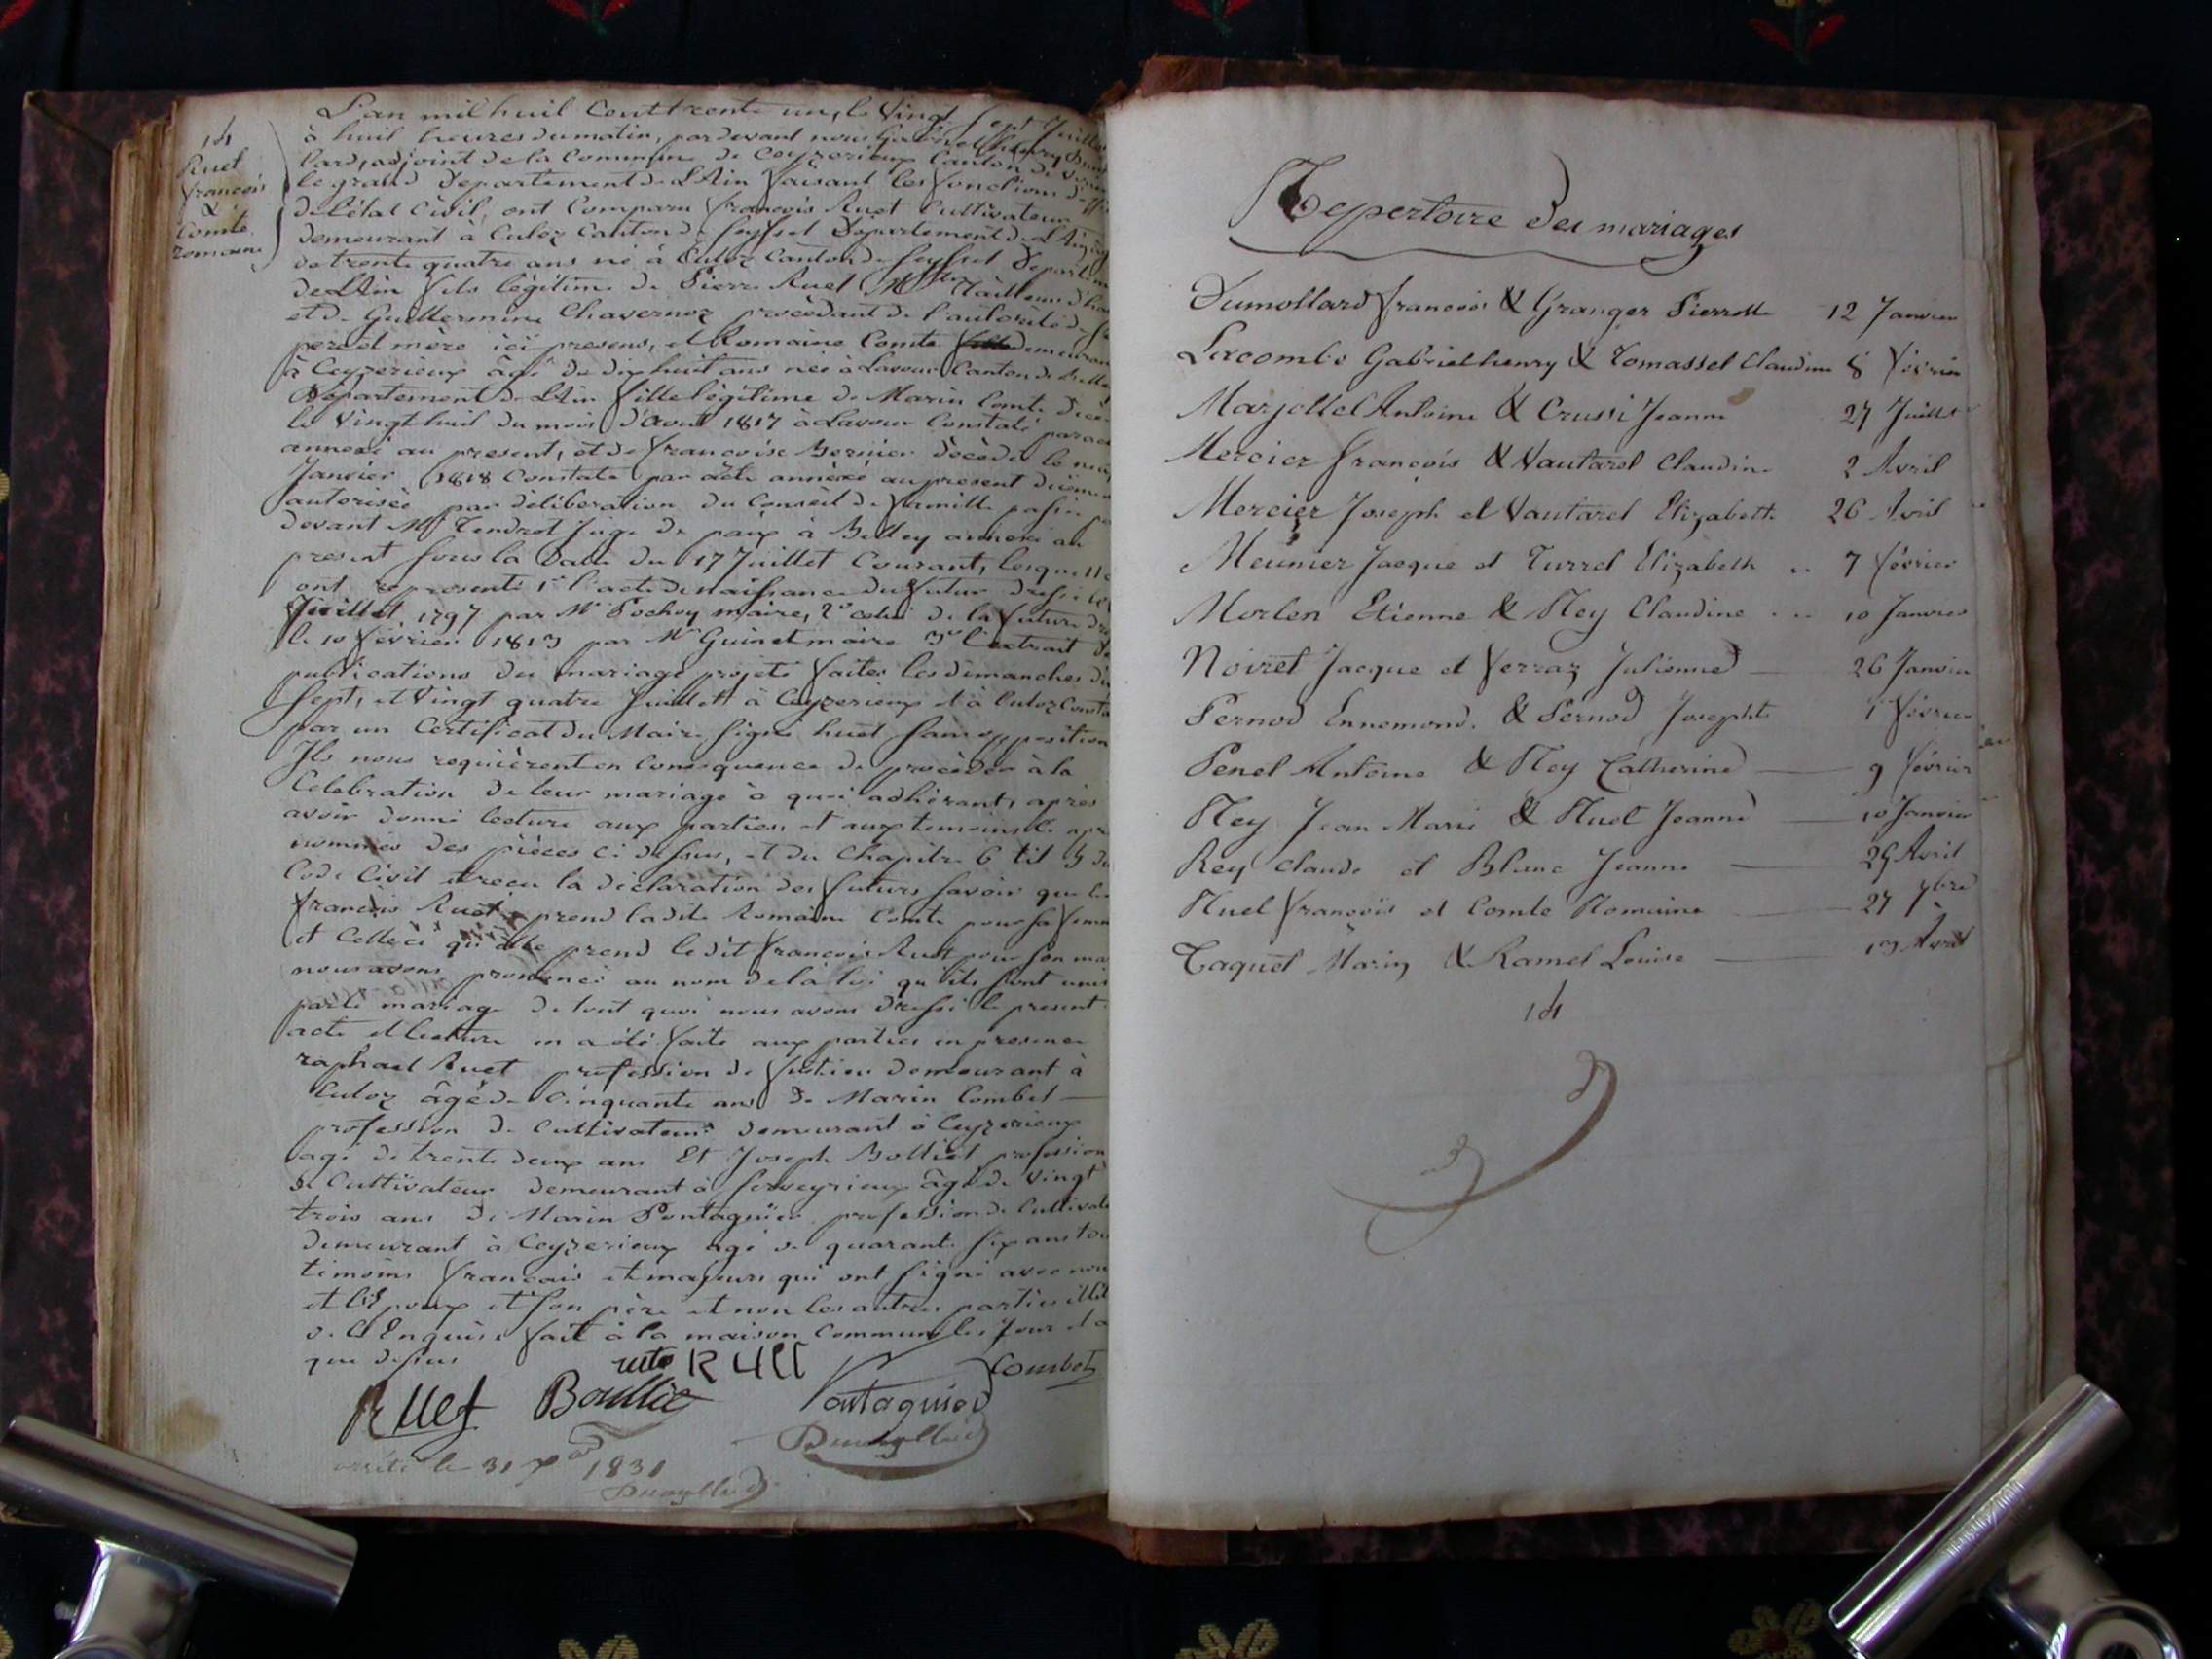 14
Ruet
francois
&
Comte
romaine
L'an mil huit Cent trente un, le Vingt Sept Juillet
à huit heures du matin, pardevant nous Gabriel henry
lard, adjoint de la Commune de Ceyzerieux Canton de
le grand Département de L'Ain faisant les fonctions d'
de l'état Civil, ont Comparu francois Ruet Cultivateur
demeurant à Culoz Canton de Seyssel Département de L'Ain
de trente quatre ans né à Culoz Canton de Seyssel Départem
de L'Ain fils légitime de Pierre Ruet Tailleur d'ha
et de Guillermine Chavernoz procédant de l'autorité de se
père et mère ici presens, et Romaine Comte demeuran
à Ceyzerieux âgé de dix huit ans née à Lavour Canton de Belle
Département de L'Ain fille légitime de Marin Comte décé
le Vingt huit du mois d'aout 1817 à Lavour Constaté par ac
annexé au present, et de francoise Bernier décédée le neuf
Janvier 1818 Constaté par acte annéxé au present duemen
autorisée par délibération du Conseil de famille passée pa
devant Mr Tendret Juge de paix à Belley annexé au
present sous la date du 17 Juillet Courant, lesquels
ont representé 1° l'acte de naissance du futur dressé le
Juillet 1797 par Mr Pochoy maire, 2° celui de la future dre
le 10 février 1813 par Mr Guinet maire 3° l'extrait de
publications du mariage projeté faites les dimanches di
sept, et Vingt quatre Juillet à Ceyzerieux et à Culoz Consta
par un Certificat du Maire signé huet sans opposition
Ils nous requièrent en Consequence de procéder à la
Celebration de leur mariage à quoi adhérant, après
avoir donné lecture aux parties et aux temoins ci apr
nommés des pièces ci dessus, et du Chapitre 6 tit 5 du
Code Civil et reçu la déclaration des futurs savoir que le
francois Ruet prend ladite Romaine Comte pour sa femm
et Celle ci qu'elle prend le dit francois Ruet pour son ma
nous avons prononcé au nom de la loi qu'ils sont unis
par le mariage de tout quoi nous avons dressé le present
acte et lecture en a été faite aux parties en presence
raphael Ruet profession de demeurant à
Culoz âgé de Cinquante ans de Marin Combet
profession de Cultivateur demeurant à Ceyzerieux
agé de trente deux ans Et Joseph Bolliet profession
de Cultivateur demeurant à Serveyrieux âgé de Vingt
trois ans de Marin Pontagnier profession de Cultivate
demeurant à Ceyzerieux agé de quarante six ans tou
témoins francais et majeurs qui ont signé avec nou
et l'Epoux et son père et non les autres parties illit
de Enquise fait à la maison Commune les Jour et a
que dessus
Ruet Combet
Ruet Boullie Pontagnier
arrêté le 31 Xbre 1831
Repertoire des mariages
Dumollard francois & Granger Pierrette 12 Janvier
Lacombe Gabriel henry & Tomassel Claudine 8 février
Marjollet Antoine & Crussi Jeanne 27 Juillet
Mercier françois & Vautarel Claudine 2 Avril
Mercier Joseph et Vautarel Elizabeth 26 Avril
Meunier Jacque et Turrel Elizabeth .. 7 février
Morlen Etienne & Rey Claudine ... 10 Janvier
Noiret Jacque et ferraz Julienne 26 Janvier
Pernod Ennemond. & Pernod Josephte 1 février
Penel Antoine & Rey Catherine 9 février
Rey Jean Marie & Ruet Jeanne 10 Janvier
Rey Claude et Blanc Jeanne 29 Avril
Ruet françois et Comte Romaine 27 7bre
Taquet Marin & Ramel Louise 13 Avril
14